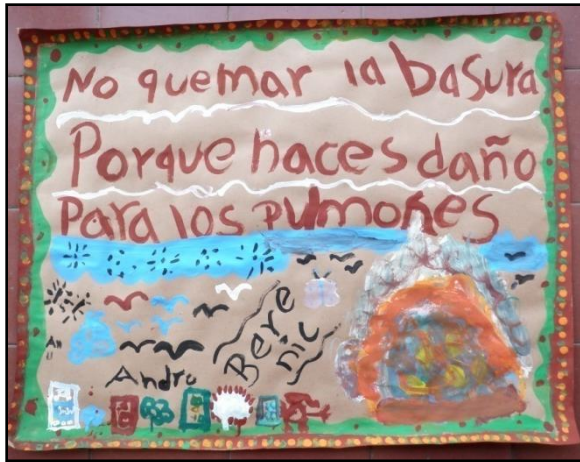 No quemar la basura
Porque haces daño
Para los pulmones
Bere
nic
Andru